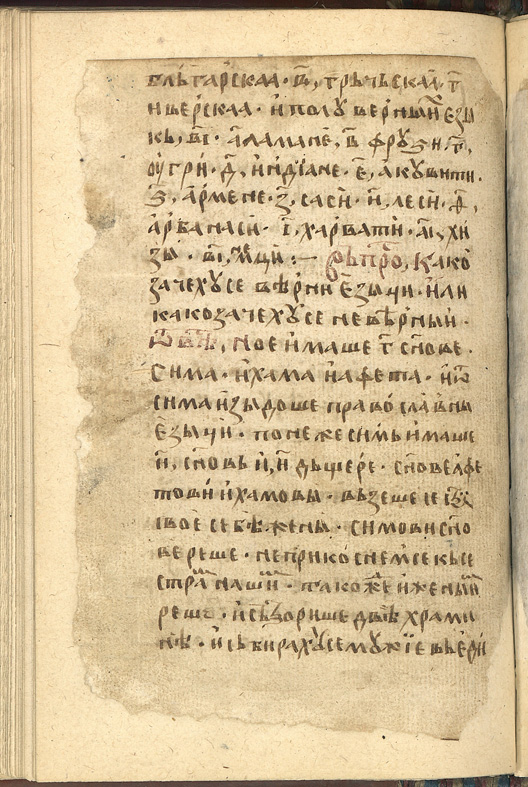 бльгарскаа · в҃, грьчьскаа, г҃
ивѣрскаа · и полꙋвѣрныⷯ езы
кь, в҃і · аламане, в҃ фрꙋзи, г҃,
ѹгри · д҃, индїане · е҃, акꙋвити ·
ѕ҃, армене · з҃, саси · и҃, леси · ѳ҃,
арбанаси · і҃, харвати · а҃і, хи
зы · в҃і, немци :– вьпро, како
зачехꙋ се вѣрни езыци · или
како зачехꙋ се невѣрныи ·
ѿвѣ, ное имаше г҃ снове ·
сима · и хама и афета · и ѿ
сима изыдоше православны
езыци · понеже симь имаше
и҃, сновь и, и҃ дьщере · снове афе
тови и хамовы · вьзеше се
свое себѣ жены · симови сно
ве реше · не прикоснемсе кь се
страⷨ нашиⷨ · такожⷣе и жены иⷯ
реше · и сьзорише двѣ храми
нѣ · и сьбирахꙋсе мꙋжїе вь еди